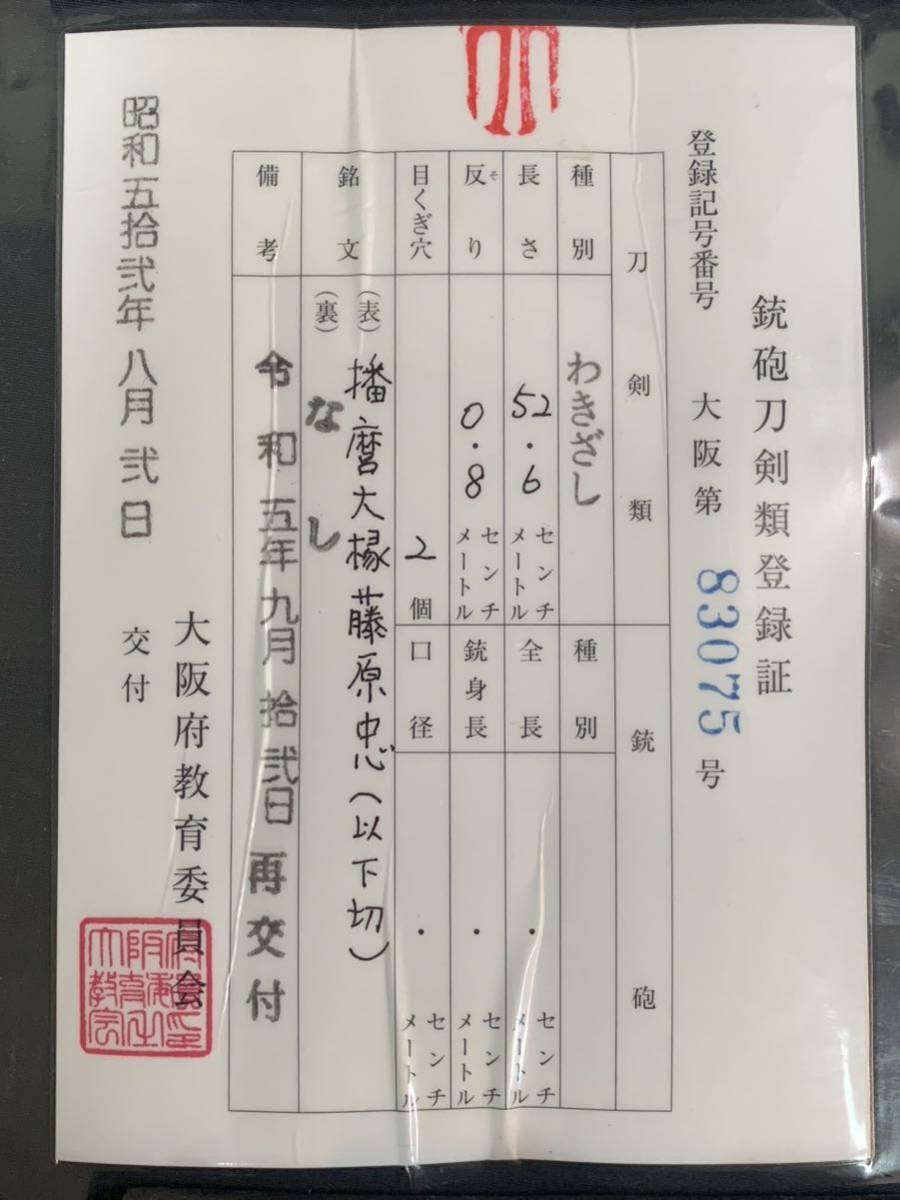 銃砲刀剣類登録証
登録記号番号 大阪第 83075 号
刀剣類
種別 わきざし
長さ 52.6 センチメートル
反り 0.8 センチメートル
そ
目くぎ穴 2 個
銘文 (表) 播磨大掾藤原忠(以下切)
(裏) なし
備考 令和五年九月拾弐日再交付
銃砲
種別
全長 . センチメートル
銃身長 . センチメートル
口径 . センチメートル
昭和五拾弐年八月弐日 交付
大阪府教育委員会